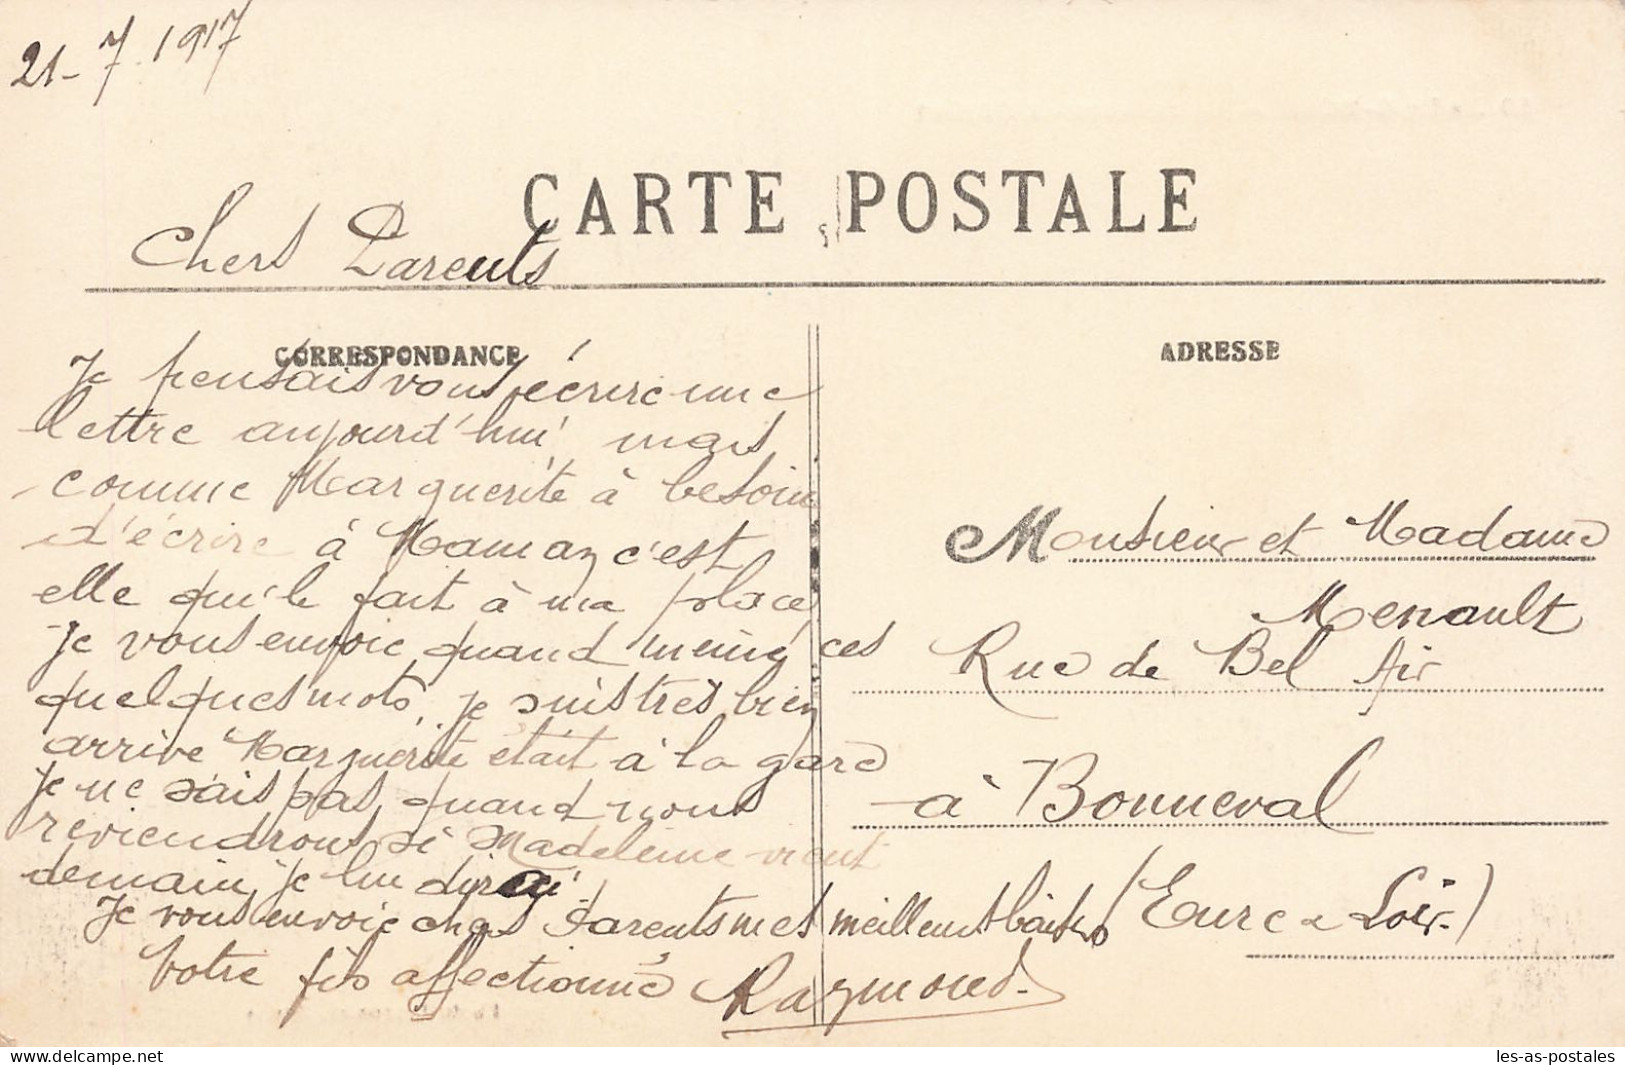 21-7.1917
CARTE POSTALE
Chers Parents
CORRESPONDANCE
Je pensais vous écrire une
lettre aujourd'hui, mais
comme Marguerite à besoin
d'écrire à Maman c'est
elle qui le fait à ma place
je vous envoie quand même ces
quelques mots, je suis très bien
arrivé Marguerite était à la gare
je ne sais pas quand nous
reviendrons si Madeleine vient
demain, je lui dirai
Je vous envoie chers Parents mes meilleurs baisers
Votre fils affectionné Raymond.
ADRESSE
Monsieur et Madame
Menault
Rue de Bel Air
à Bonneval
(Eure & Loir.)
delcampe.net
les-as-postales